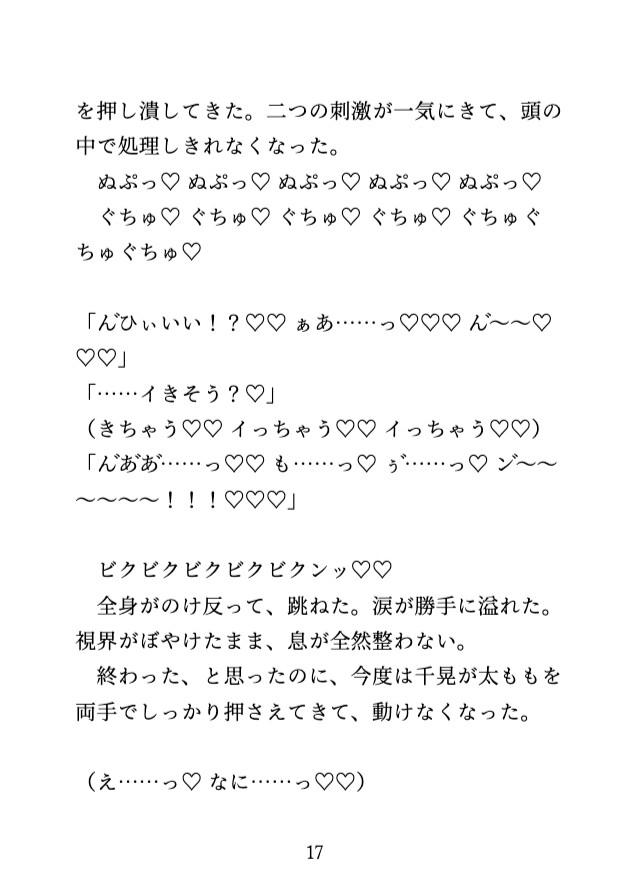 を押し潰してきた。二つの刺激が一気にきて、頭の
中で処理しきれなくなった。
ぬぷっ♡ ぬぷっ♡ ぬぷっ♡ ぬぷっ♡ ぬぷっ♡
ぐちゅ♡ ぐちゅ♡ ぐちゅ♡ ぐちゅ♡ ぐちゅぐ
ちゅぐちゅ♡
「ん゛ひぃいい！？♡♡ ぁあ……っ♡♡♡ ん゛〜〜♡
♡♡」
「……イきそう？♡」
（きちゃう♡♡ イっちゃう♡♡ イっちゃう♡♡）
「ん゛あ゛あ゛……っ♡♡ も……っ♡ ぅ゛……っ♡ ン゛〜〜
〜〜〜〜！！！♡♡♡」
ビクビクビクビクビクンッ♡♡
全身がのけ反って、跳ねた。涙が勝手に溢れた。
視界がぼやけたまま、息が全然整わない。
終わった、と思ったのに、今度は千晃が太ももを
両手でしっかり押さえてきて、動けなくなった。
（え……っ♡ なに……っ♡♡）
17